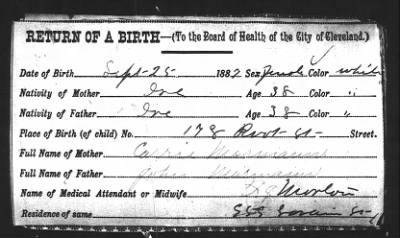 RETURN OF A BIRTH—(To the Board of Health of the City of Cleveland.)
Date of Birth Sept-25 1882 Sex female Color white
Nativity of Mother Ire Age 38 Color "
Nativity of Father Ire Age 38 Color "
Place of Birth (of child) No. 178 St- Street.
Full Name of Mother Carrie
Full Name of Father John
Name of Medical Attendant or Midwife Morton
Residence of same St-